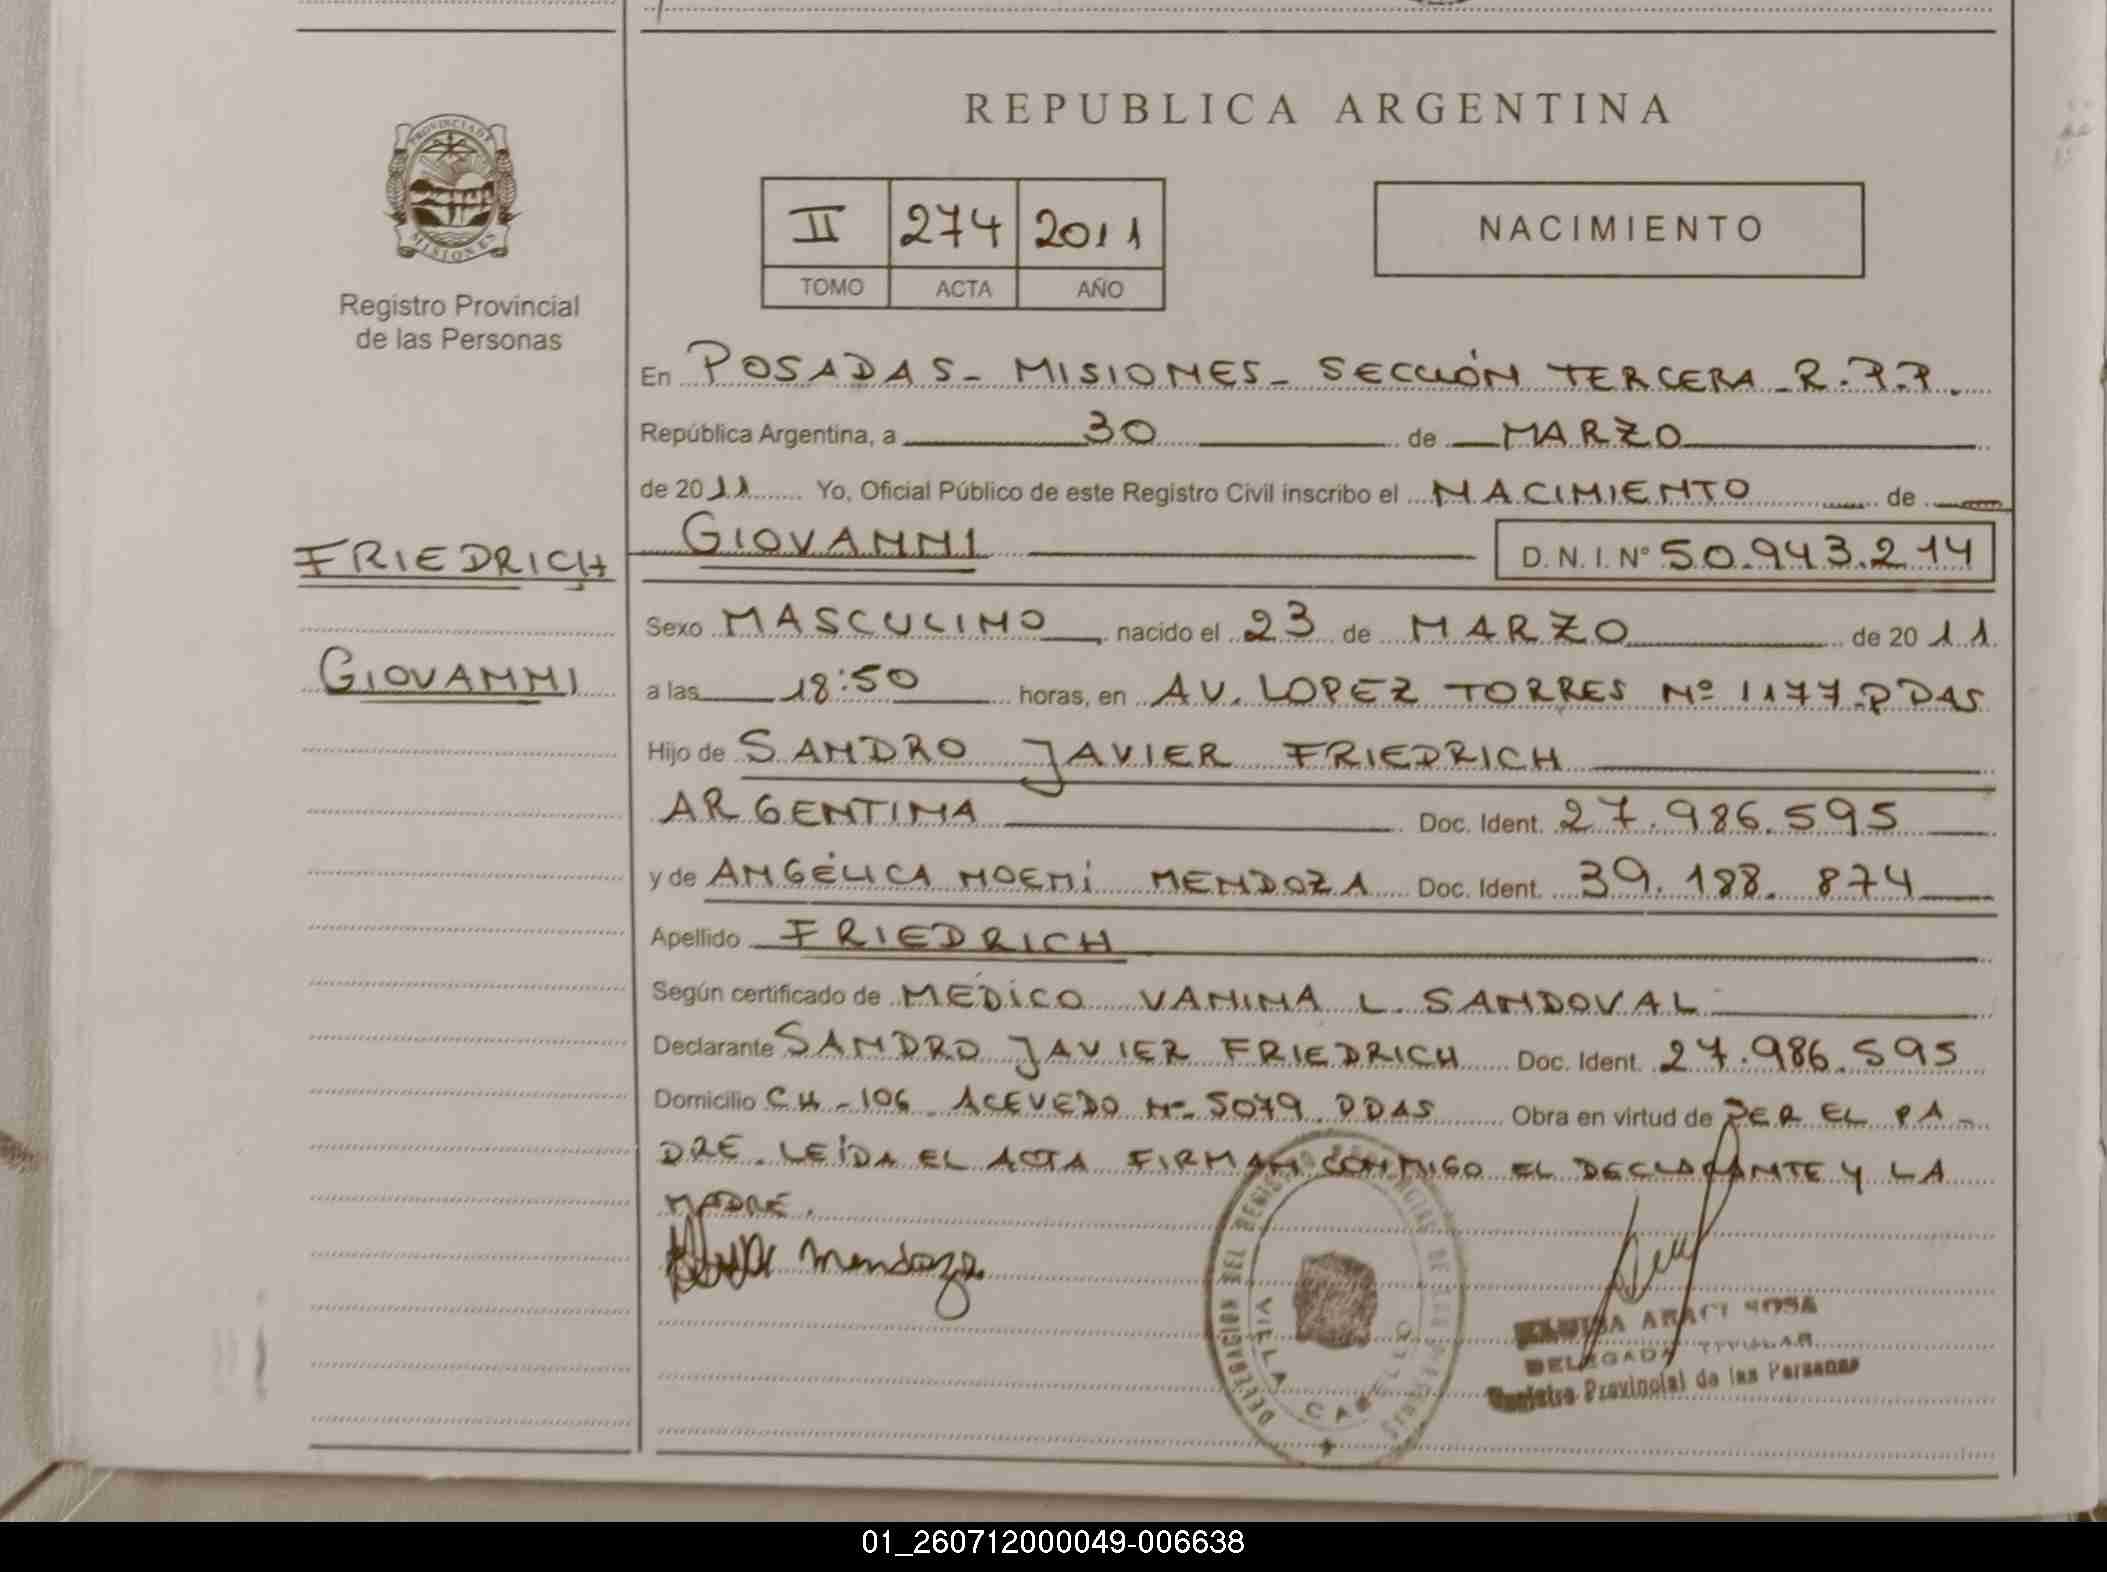 REPUBLICA ARGENTINA
PROVINCIA DE
MISIONES
Registro Provincial
de las Personas
II 274 2011
TOMO ACTA AÑO
NACIMIENTO
En POSADAS - MISIONES - SECCIÓN TERCERA - R.P.P.
República Argentina, a 30 de MARZO
de 2011 Yo, Oficial Público de este Registro Civil inscribo el NACIMIENTO de
FRIEDRICH
GIOVANNI
GIOVANNI D.N.I. Nº 50.943.214
Sexo MASCULINO, nacido el 23 de MARZO de 2011
a las 18:50 horas, en AV. LOPEZ TORRES Nº 1177 - PDAS
Hijo de SANDRO JAVIER FRIEDRICH
ARGENTINA Doc. Ident. 27.986.595
y de ANGÉLICA NOEMÍ MENDOZA Doc. Ident. 39.188.874
Apellido FRIEDRICH
Según certificado de MÉDICO VANINA L. SANDOVAL
Declarante SANDRO JAVIER FRIEDRICH Doc. Ident. 27.986.595
Domicilio CH - 106 ACEVEDO Nº 5079. PDAS Obra en virtud de SER EL PA-
DRE. LEÍDA EL ACTA FIRMAN CONMIGO EL DECLARANTE Y LA
MADRE.
Mendoza
DELEGACION DEL REGISTRO PROVINCIAL DE LAS PERSONAS
VILLA CABELLO
ARACI SOSA
DELEGADA TITULAR
Registro Provincial de las Personas
01_260712000049-006638